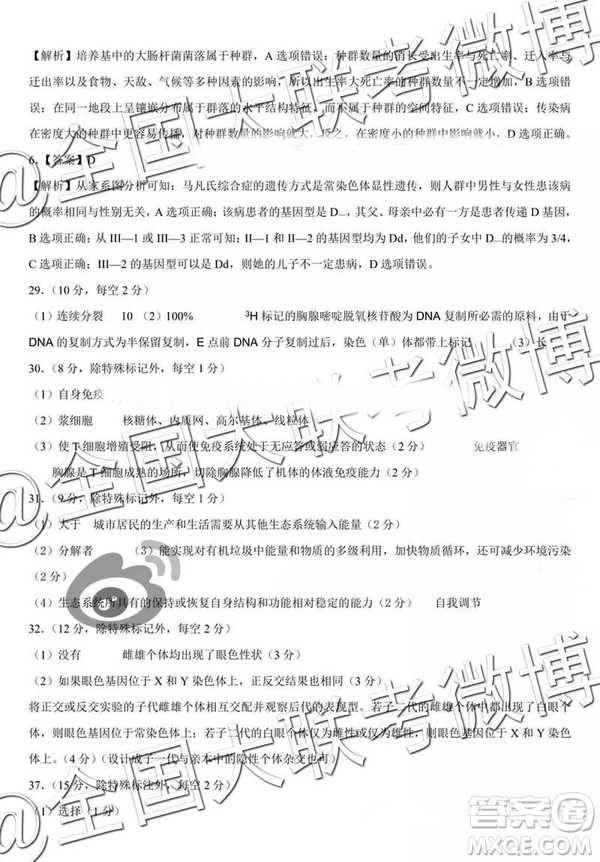 【解析】培养基中的大肠杆菌菌落属于种群，A 选项错误；种群数量的消长受出生与死亡率、迁入率与
迁出率以及食物、天敌、气候等多种因素的影响，所以出生率大死亡率种群数量不一定增加，B 选项错
误；在同一地段上呈镶嵌分布属于群落的水平结构特征，而不属于种群的空间特征，C 选项错误；传染病
在密度大的种群中更容易传播，对种群数量的影响就大，反之，在密度小的种群中影响就小，D 选项正确。
6.【答案】D
【解析】从家系图分析可知：马凡氏综合症的遗传方式是常染色体显性遗传，则人群中男性与女性患该病
的概率相同，与性别无关，A 选项正确；该病患者的基因型是 D_，其父、母亲中必有一方是患者（D_），
B 选项正确；从 III—1 或 III—3 正常可知：II—1 和 II—2 的基因型均为 Dd，他们的子女中 D_的概率为 3/4，
C 选项正确；III—2 的基因型可以是 Dd，则她的儿子不一定患病，D 选项错误。
29.（10 分，每空 2 分）
（1）连续分裂 10 （2）100% ³H 标记的胸腺嘧啶脱氧核苷酸为 DNA 复制所必需的原料，由于
DNA 的复制方式为半保留复制，E 点前 DNA 分子复制过后，染色（单）体都带上标记 （3）长
30.（8 分，除特殊标记外，每空 1 分）
（1）自身免疫
（2）浆细胞 核糖体、内质网、高尔基体、线粒体
（3）使 T 细胞增殖受阻，从而使免疫系统处于无应答或弱应答的状态（2 分） 免疫器官
胸腺是 T 细胞成熟的场所，切除胸腺降低了机体的体液免疫能力（2 分）
31.（9 分，除特殊标记外，每空 1 分）
（1）大于 城市居民的生产和生活需要从其他生态系统输入能量（2 分）
（2）分解者 （3）能实现对有机垃圾中能量和物质的多级利用，加快物质循环，还可减少环境污染
（2 分）
（4）生态系统所具有的保持或恢复自身结构和功能相对稳定的能力（2 分） 自我调节
32.（12 分，除特殊标记外，每空 2 分）
（1）没有 雌雄个体均出现了眼色性状（3 分）
（2）如果眼色基因位于 X 和 Y 染色体上，正反交结果可能相同（3 分）
将正交或反交实验的子代雌雄个体相互交配并观察后代的表现型。若子二代的雌雄个体中都出现了白眼个
体，则眼色基因位于常染色体上；若子二代的白眼个体仅为雄性或仅为雌性，则眼色基因位于 X 和 Y 染色
体上。（4 分）（设计成子一代与亲本中的隐性个体杂交亦可）
37.（15 分，除特殊标注外，每空 2 分）
（1）选择（1 分）
@全国大联考微博
@全国大联考微博
@全国大联考微博
答案圈
MXQE.COM